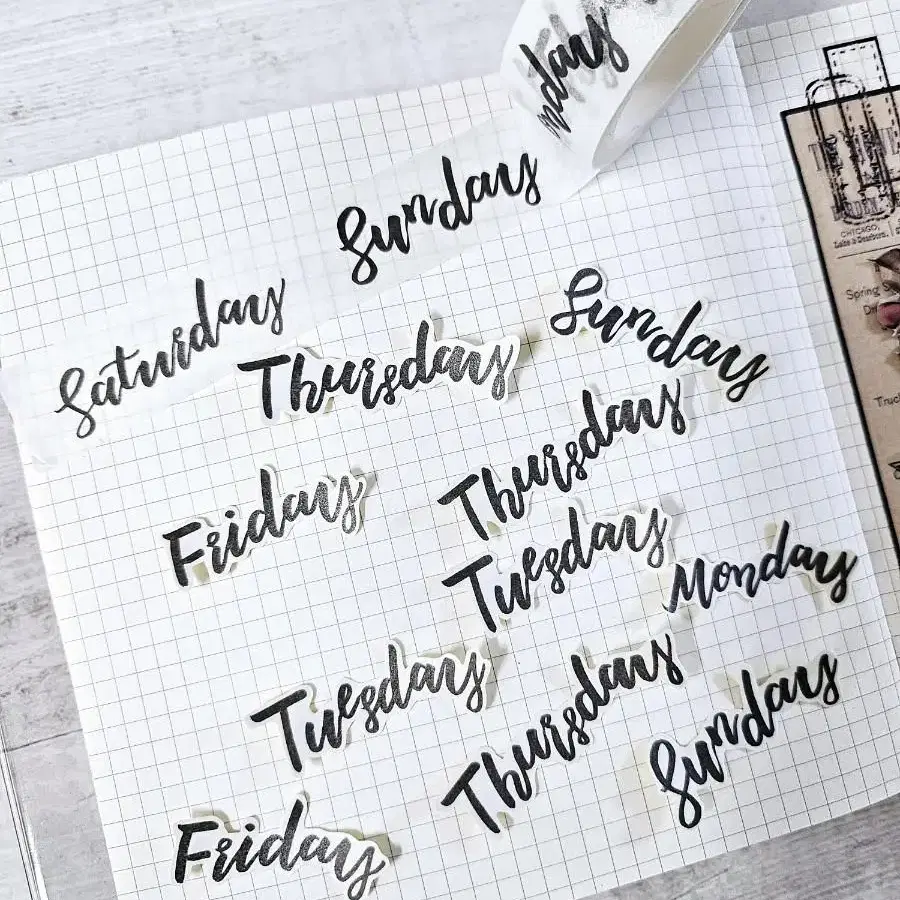 nday
Sunday
Saturday
Thursday
Sunday
Thursday
Friday
Tuesday
Monday
Tuesday
Thursday
Sunday
Friday
CHICAGO,
Lake & Dearborn,
Spring
Truck